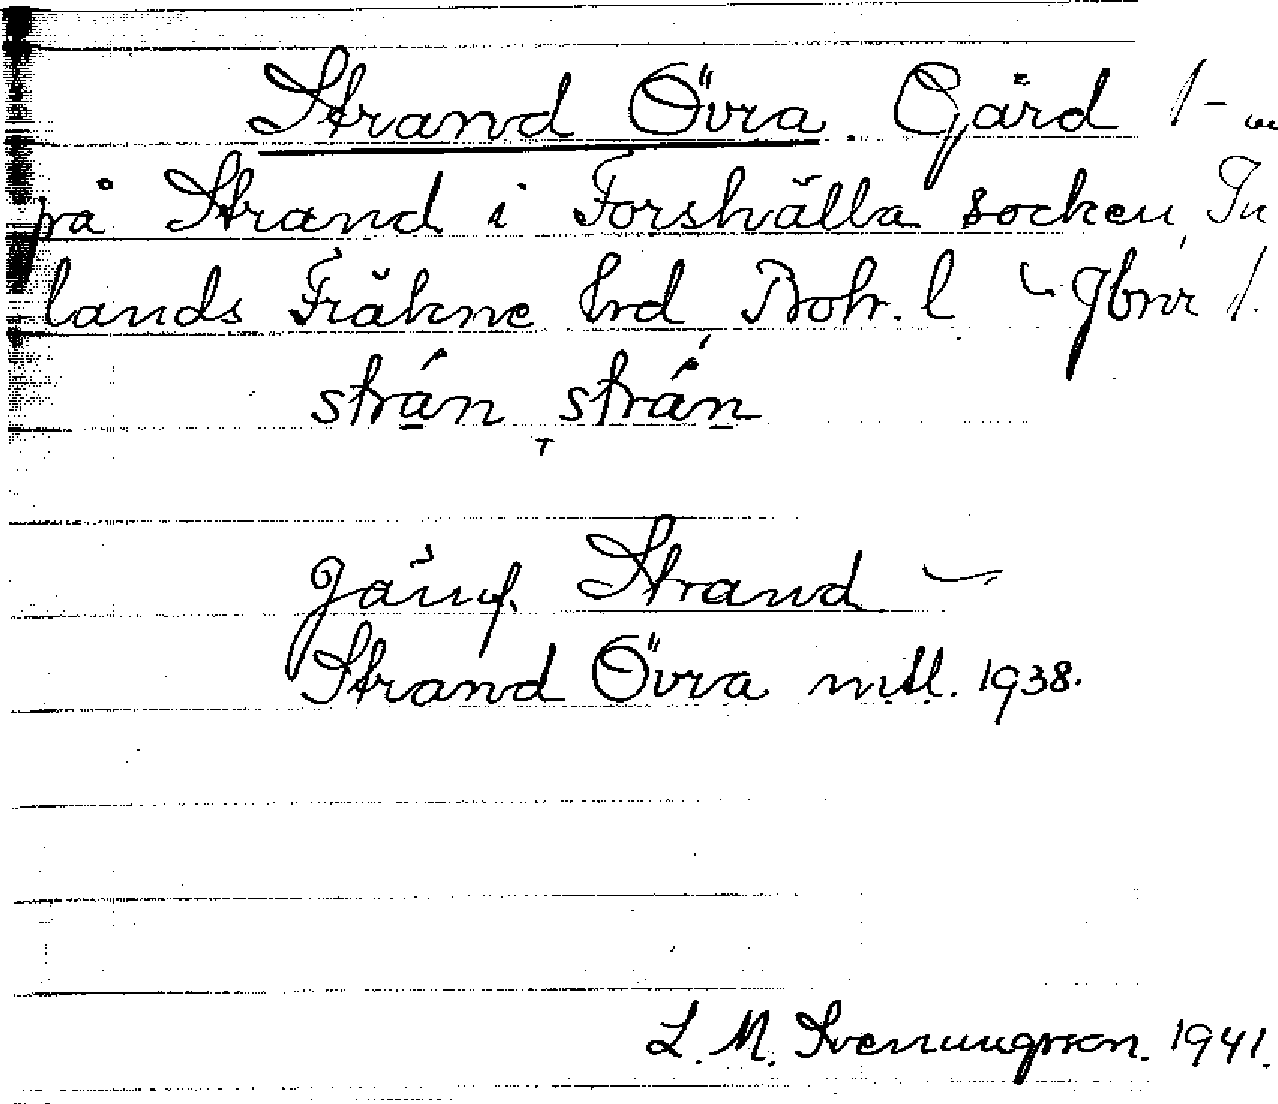 Strand Övra. Gård 1 -
på Strand i Forshälla socken, In
lands Fräkne hrd Boh. l Jbnr 1.
strán, strán
Jämf. Strand
Strand Övra mtl. 1938.
L. M. Svenungsson. 1941.